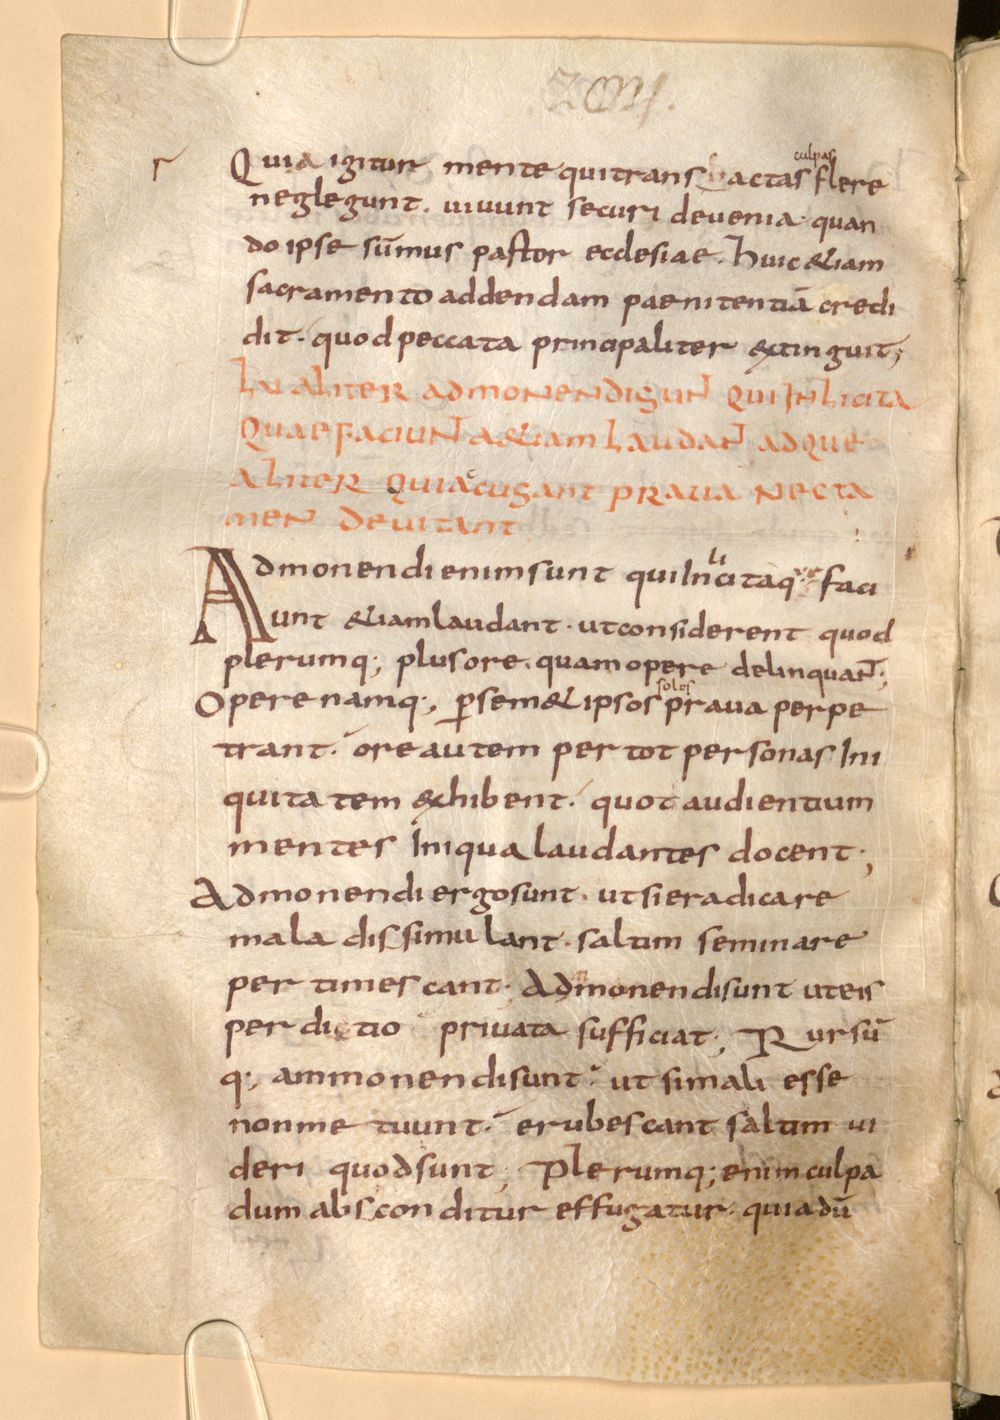 Quia igitur mente qui transactas culpas flere
neglegunt. uiuunt securi de uenia. quan
do ipse sūmus pastor ecclesiae. huic &iam
sacramento addendam paenitentiā credi
dit. quod peccata principaliter extinguit;
aliter admonendi sunt qui Inlicita
quae faciunt &iam laudant adque
aliter qui accusant praua nec ta
men deuitant
Admonendi enim sunt qui Inlicitaq faci
unt &iam laudant. ut considerent quod
plerumq; plus ore. quam opere delinquant;
Opere namq; p semet ipsos solos praua perpe
trant. ore autem per tot personas Ini
quitatem exhibent. quot audientium
mentes Iniqua laudantes docent;
Admonendi ergo sunt. ut si eradicare
mala dissimulant. saltim seminare
pertimescant. Admonendi sunt ut eis
perditio priuata sufficiat; Rursū
q; ammonendi sunt. ut si mali esse
non metuunt. erubescant saltim ui
deri quod sunt; Plerumq; enim culpa
dum absconditur effugatur. quia dū